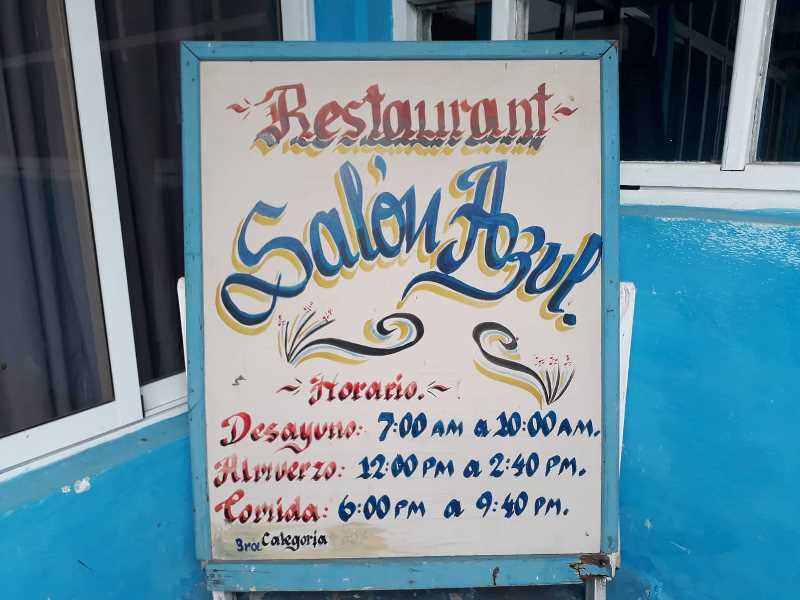 Restaurant
Salón Azul.
Horario.
Desayuno: 7:00 AM a 10:00 AM.
Almuerzo: 12:00 PM a 2:40 PM.
Comida: 6:00 PM a 9:40 PM.
3ra Categoria